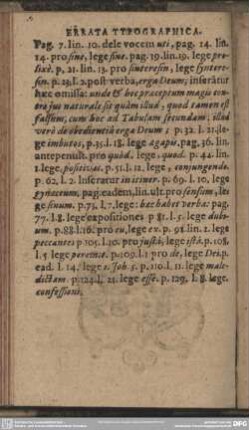 ERRATA TYPOGRAPHICA.
Pag. 7. lin. 10. dele vocem uti, pag. 14. lin.
14. pro sine, lege sive. pag. 19. lin. 19. lege pro-
lixè. p. 21. lin. 13. pro sinteresin, lege synteres-
sin. p. 23. l. 2. post verba, ergo Deum; inseratur
hæc omissa: unde & hoc præceptum magis con-
tra jus naturale sit quàm illud, quod tamen est
falsum; cum hoc ad Tabulam secundam, illud
verò de obedientia erga Deum s p. 32. l. 21. le-
ge imbutos, p. 35. l. 18. lege agapis. pag. 36. lin.
antepenult. pro quòd, lege, quod. p. 42. lin.
1. lege, positivæ. p. 51. l. 12. lege, conjungendo.
p. 62, l. 2. Inseratur in inter. p. 69. l. 10, lege
gynæceum. pag. eadem, lin. ult. pro sensim, le-
ge sinum. p. 73. l. 7. lege: hæc habet verba: pag.
77. l. 8. lege expositiones p 81. l. 5. lege dubi-
um. p. 88. l. 16. pro eu, lege ex. p. 91. lin. 1. lege
peccantes p 105. l. 10. pro justi, lege isti. p. 108.
l. 5 lege peremtæ. p. 109. l. 1 pro de, lege Dei. p.
ead. l. 14. lege 1. Joh. 5. p. 110. l. 11. lege male-
dictam. p. 124. l. 21. lege esse. p. 129. l. 8. lege.
confessioni.